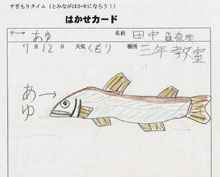 すぎもりタイム（とみながはかせになろう！）
はかせカード
テーマ あゆ 名前 田中
7月12日 天気 くもり 場所 三年教室
あゆ